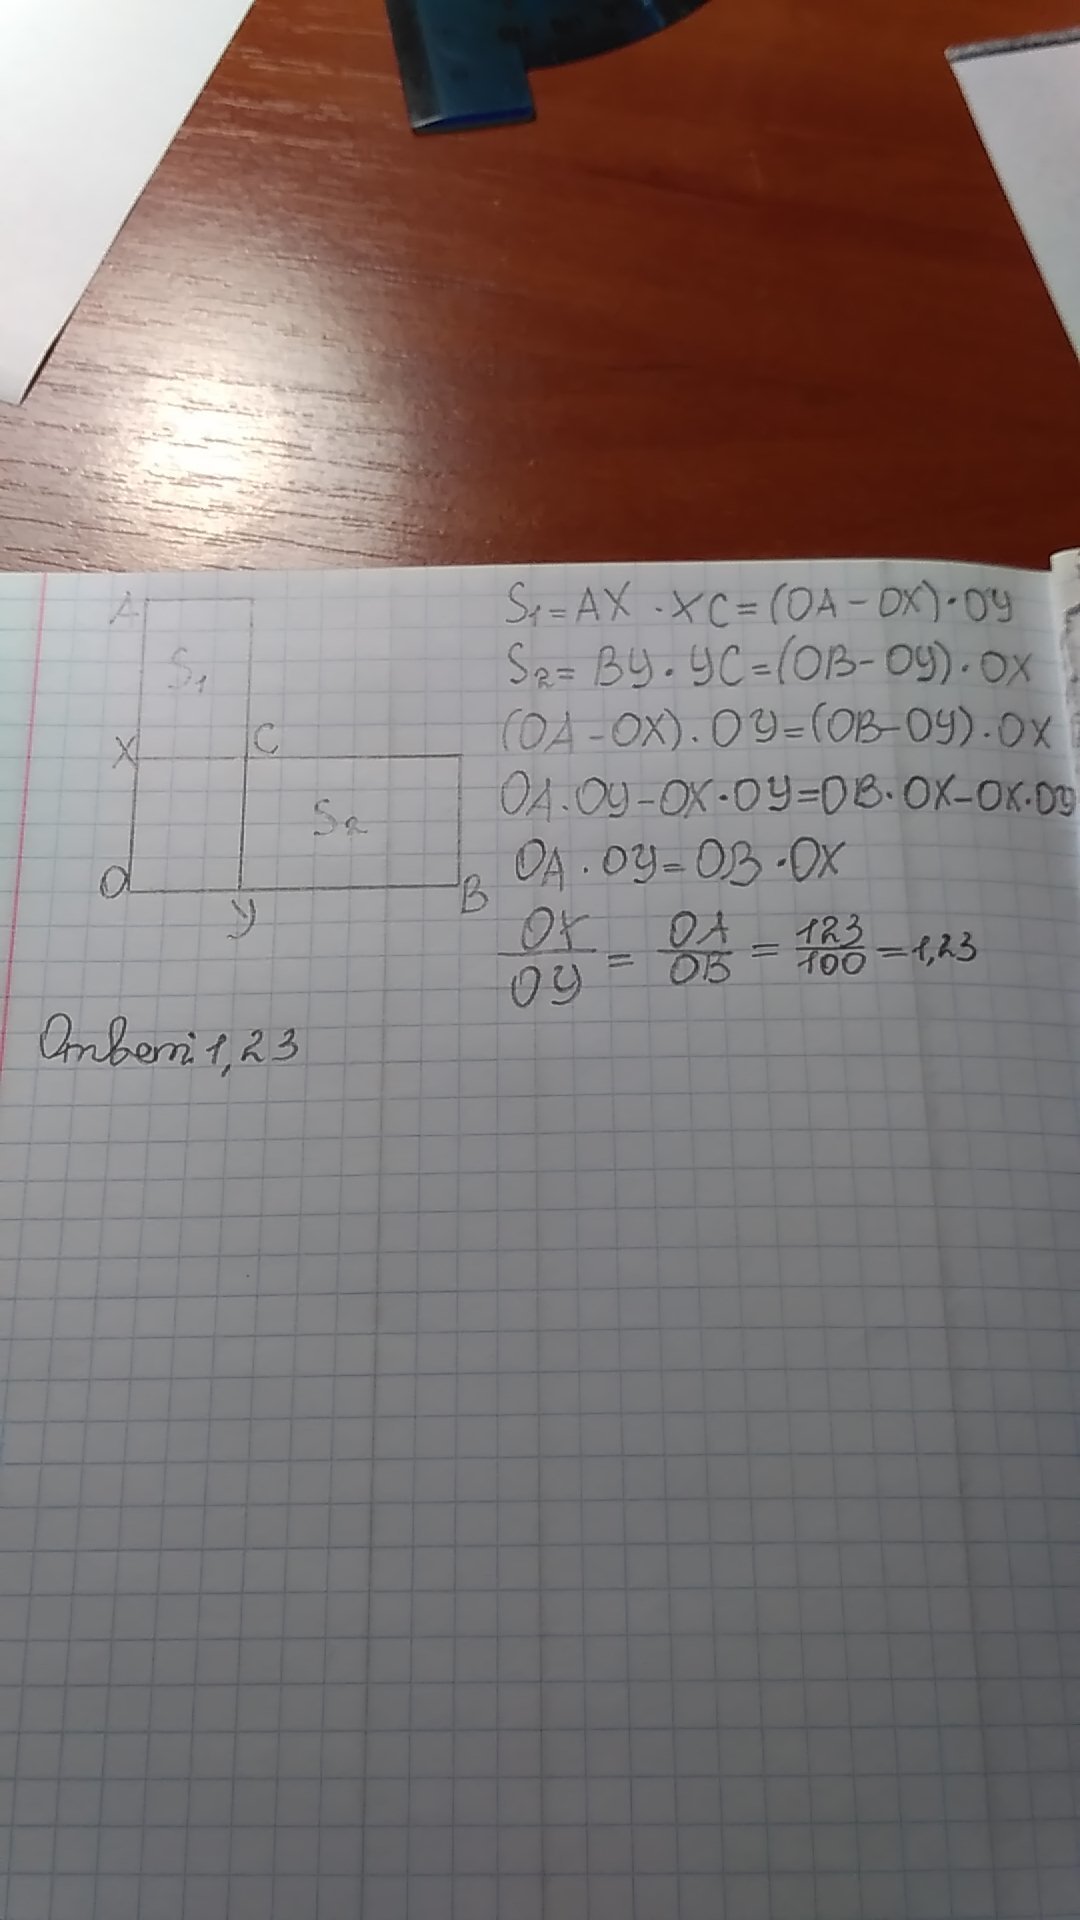 A
S₁
X C
S₂
O
У
B
S₁ = AX · XC = (OA - OX) · OУ
S₂ = BУ · УC = (OB - OУ) · OX
(OA - OX) · OУ = (OB - OУ) · OX
OA · OУ - OX · OУ = OB · OX - OX · OУ
OA · OУ = OB · OX
OX/OУ = OA/OB = 123/100 = 1,23
Ответ: 1,23